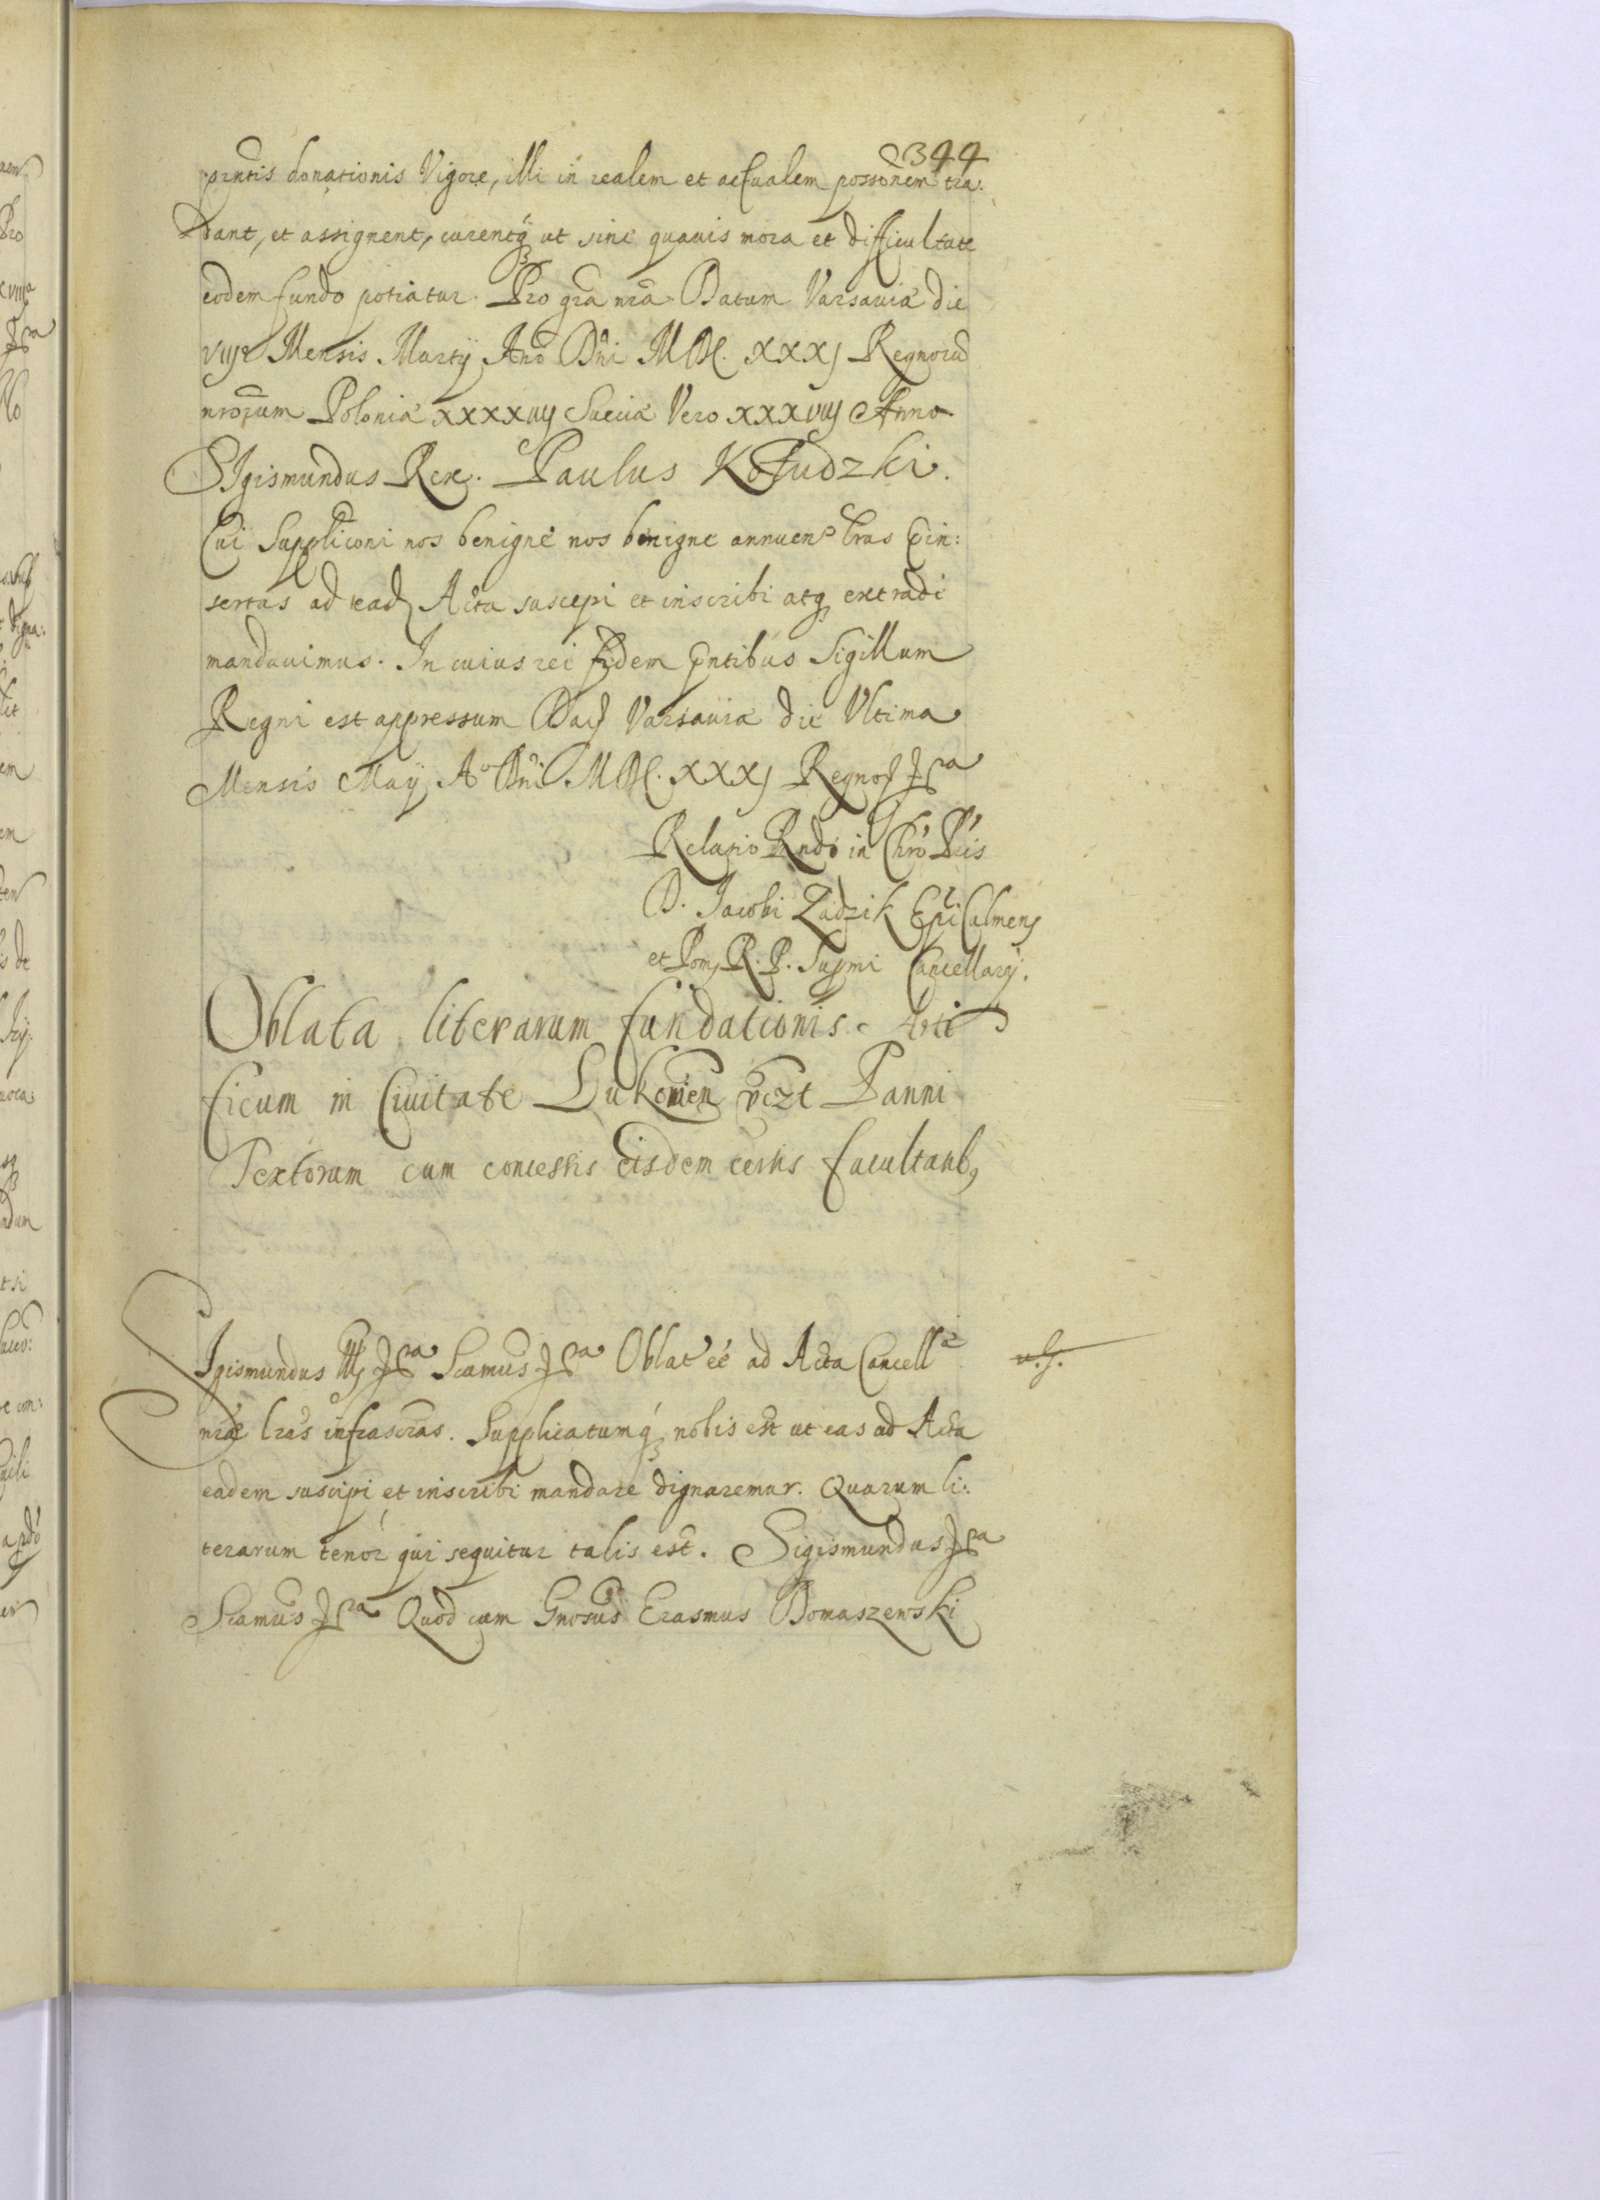 344
prntis donationis Vigore, illi in realem et actualem possonem tra:
dant, et assignent, curentq ut sine quavis mora et difficultate
eodem fundo potiatur. Pro gra nra. Datum Varsavia die
Mensis Martij Ano Dni MDC. XXXj Regnorũ
nrorum Polonia xxxxiiij Suecia Vero xxxviij Anno
SIgismundus Rex. Paulus Kołudzki.
Cui Suppliconi nos benigne nos benigne annuen lras
sertas ad ead Acta suscepi et inscribi atq extradi
mandavimus. In cuius rei fidem pntibus Sigillum
Regni est appressum Varsavia die Ultima
Mensis Maij Ao Dni MDC. XXXj Regno
Relatio Rndi in Chro Pris
D. Jacobi Zadzik Epi Culmens
et Pom, R. P. Supmi Cancellarij.
Oblata literarum fundationis Arti
ficum in Civitate Lukovien vczt Panni
Textorum cum concessis eisdem certis facultatib,
SIgismundus IIIs Scamus Oblat ee ad Acta Cancell
nrae lras infrascras. Supplicatumq nobis est ut eas ad Acta
eadem suscipi et inscribi mandare dignaremur. Quarum li:
terarum tenor qui sequitur talis est. Sigismundus
Scamus Quod cum Gnosus Erasmus Domaszewski